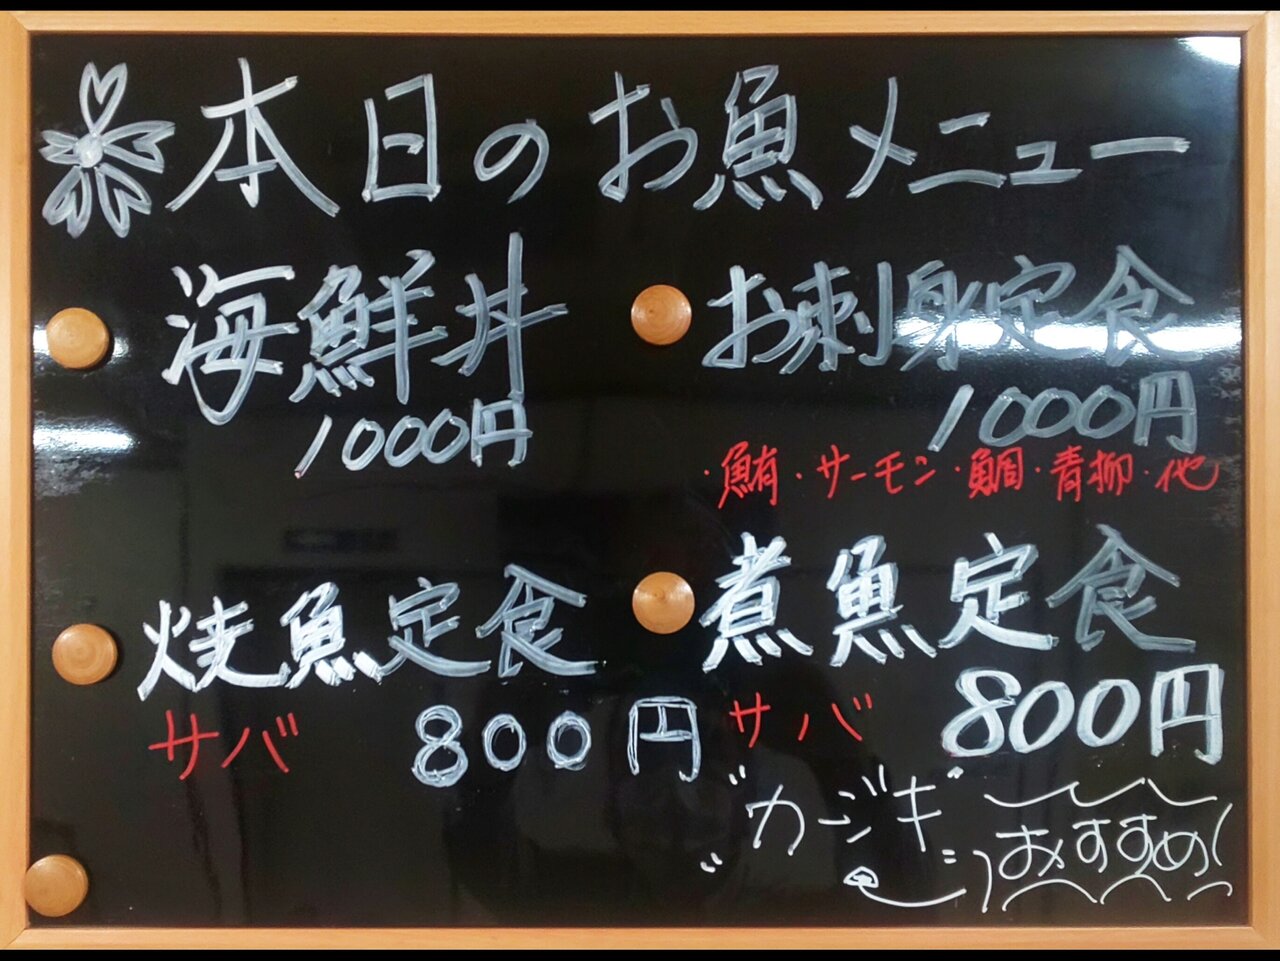 本日のお魚メニュー
海鮮丼
1000円
お刺身定食
1000円
・鮪・サーモン・鯛・青柳・他
焼魚定食
サバ 800円
煮魚定食
サバ 800円
"カジキ"
おすすめ